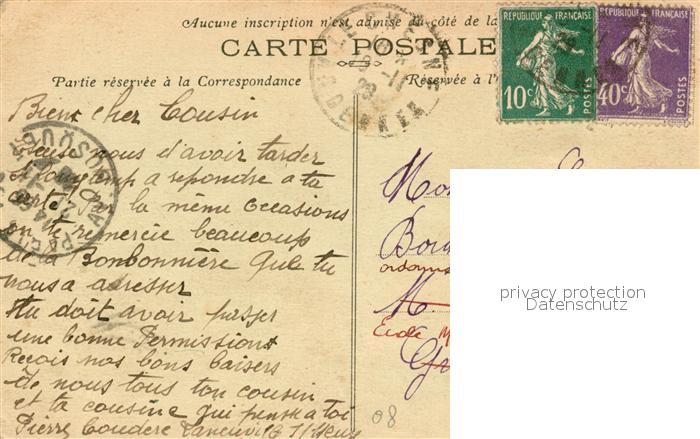 Aucune inscription n'est admise du côté de la
CARTE POSTALE
Partie réservée à la Correspondance
Réservée à l'
RÉPUBLIQUE FRANÇAISE
10c
POSTES
RÉPUBLIQUE FRANÇAISE
40c
POSTES
Bien cher Cousin
Excuse nous d'avoir tarder
si longtemp a repondre a ta
carte, Par la même occasions
on te remercie beaucoup
de la Bonbonnière que tu
nous a adresser
tu doit avoir passer
une bonne Permission
Reçois nos bons baisers
de nous tous ton cousin
et ta cousine qui pense a toi
Pierre Coudere
Mon
Bor
M.
École
08
privacy protection
Datenschutz